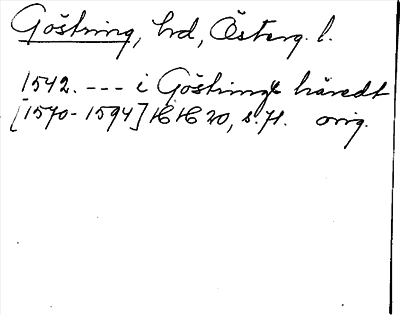 Göstring, hd, Österg. l.
1542. --- i Göstringx häredt
[1570-1594] HH 20, s. 71. orig.